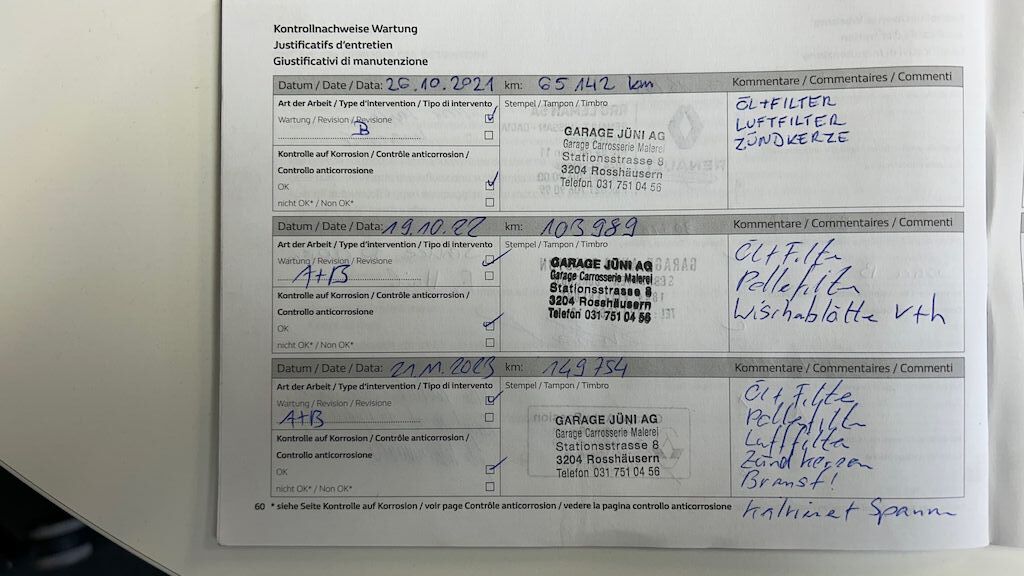 Kontrollnachweise Wartung
Justificatifs d'entretien
Giustificativi di manutenzione
Datum / Date / Data: 26.10.2021 km: 65 142 km Kommentare / Commentaires / Commenti
Art der Arbeit / Type d'intervention / Tipo di intervento
Wartung / Revision / Revisione
B
Kontrolle auf Korrosion / Contrôle anticorrosion /
Controllo anticorrosione
OK
nicht OK* / Non OK*
Stempel / Tampon / Timbro
GARAGE JÜNI AG
Garage Carrosserie Malerei
Stationsstrasse 8
3204 Rosshäusern
Telefon 031 751 04 56
ÖL+FILTER
LUFTFILTER
ZÜNDKERZE
Datum / Date / Data: 19.10.22 km: 103989 Kommentare / Commentaires / Commenti
Art der Arbeit / Type d'intervention / Tipo di intervento
Wartung / Revision / Revisione
A+B
Kontrolle auf Korrosion / Contrôle anticorrosion /
Controllo anticorrosione
OK
nicht OK* / Non OK*
Stempel / Tampon / Timbro
GARAGE JÜNI AG
Garage Carrosserie Malerei
Stationsstrasse 8
3204 Rosshäusern
Telefon 031 751 04 56
Öl+Filter
Pollefilter
Wischablötte v+h
Datum / Date / Data: 21.11.2023 km: 149754 Kommentare / Commentaires / Commenti
Art der Arbeit / Type d'intervention / Tipo di intervento
Wartung / Revision / Revisione
A+B
Kontrolle auf Korrosion / Contrôle anticorrosion /
Controllo anticorrosione
OK
nicht OK* / Non OK*
Stempel / Tampon / Timbro
GARAGE JÜNI AG
Garage Carrosserie Malerei
Stationsstrasse 8
3204 Rosshäusern
Telefon 031 751 04 56
Öl+Filter
Pollefilter
Luftfilter
Zündkerzen
Bremsf!
60 * siehe Seite Kontrolle auf Korrosion / voir page Contrôle anticorrosion / vedere la pagina controllo anticorrosione